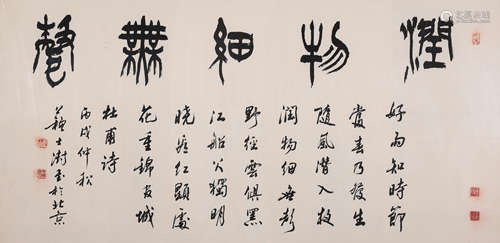 潤物細無聲
好雨知時節
當春乃發生
隨風潛入夜
潤物細無聲
野徑雲俱黑
江船火獨明
曉看紅濕處
花重錦官城
杜甫詩
丙戌仲秋
蘇士澍書於北京